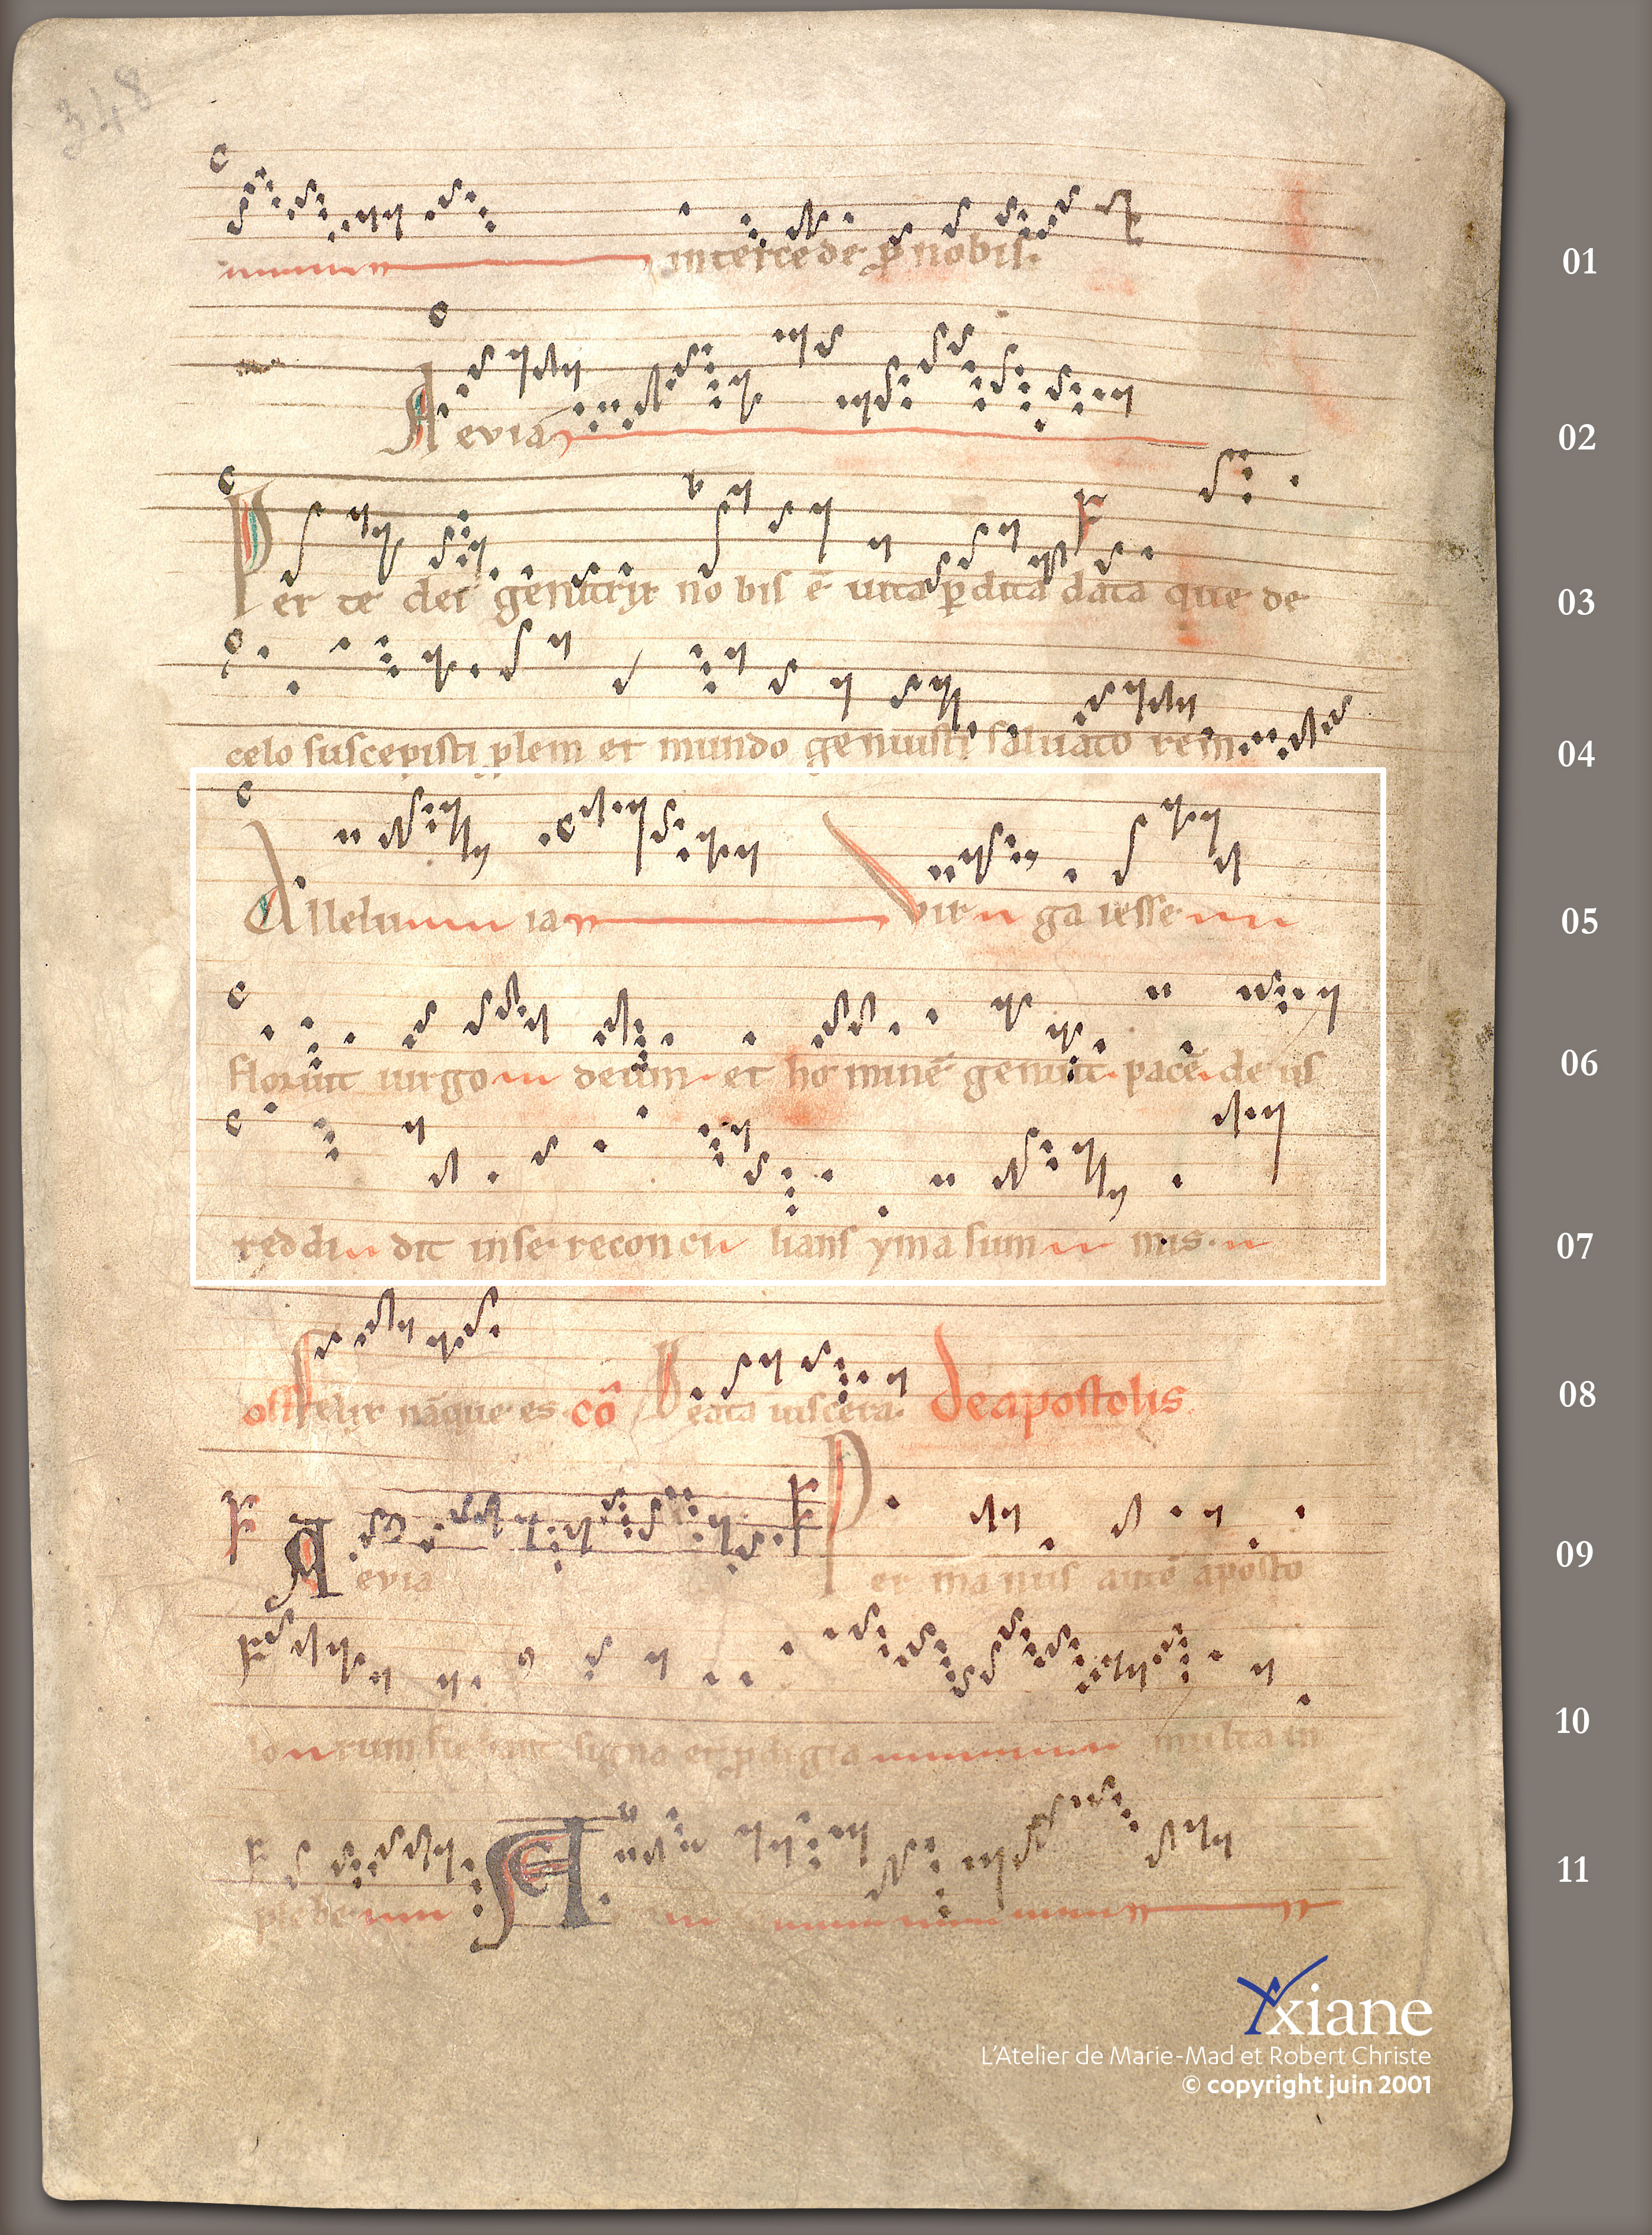 348
intercede p nobis.
01
Aevia
02
Per te dei genitrix nobis ē uita pdita data que de
03
celo suscepisti plem et mundo genuisti saluatorem
04
Alleluia Virga iesse
05
floruit uirgo deum et hominē genuit pacē deus
06
reddidit in se reconcilians yma summis.
07
post felix nāque es cō Beata uiscera. De apostolis
08
Aevia Per manus autē aposto
09
lorum fiebant signa et pdigia multa in
10
plebe A
11
Yxiane
L'Atelier de Marie-Mad et Robert Christe
© copyright juin 2001